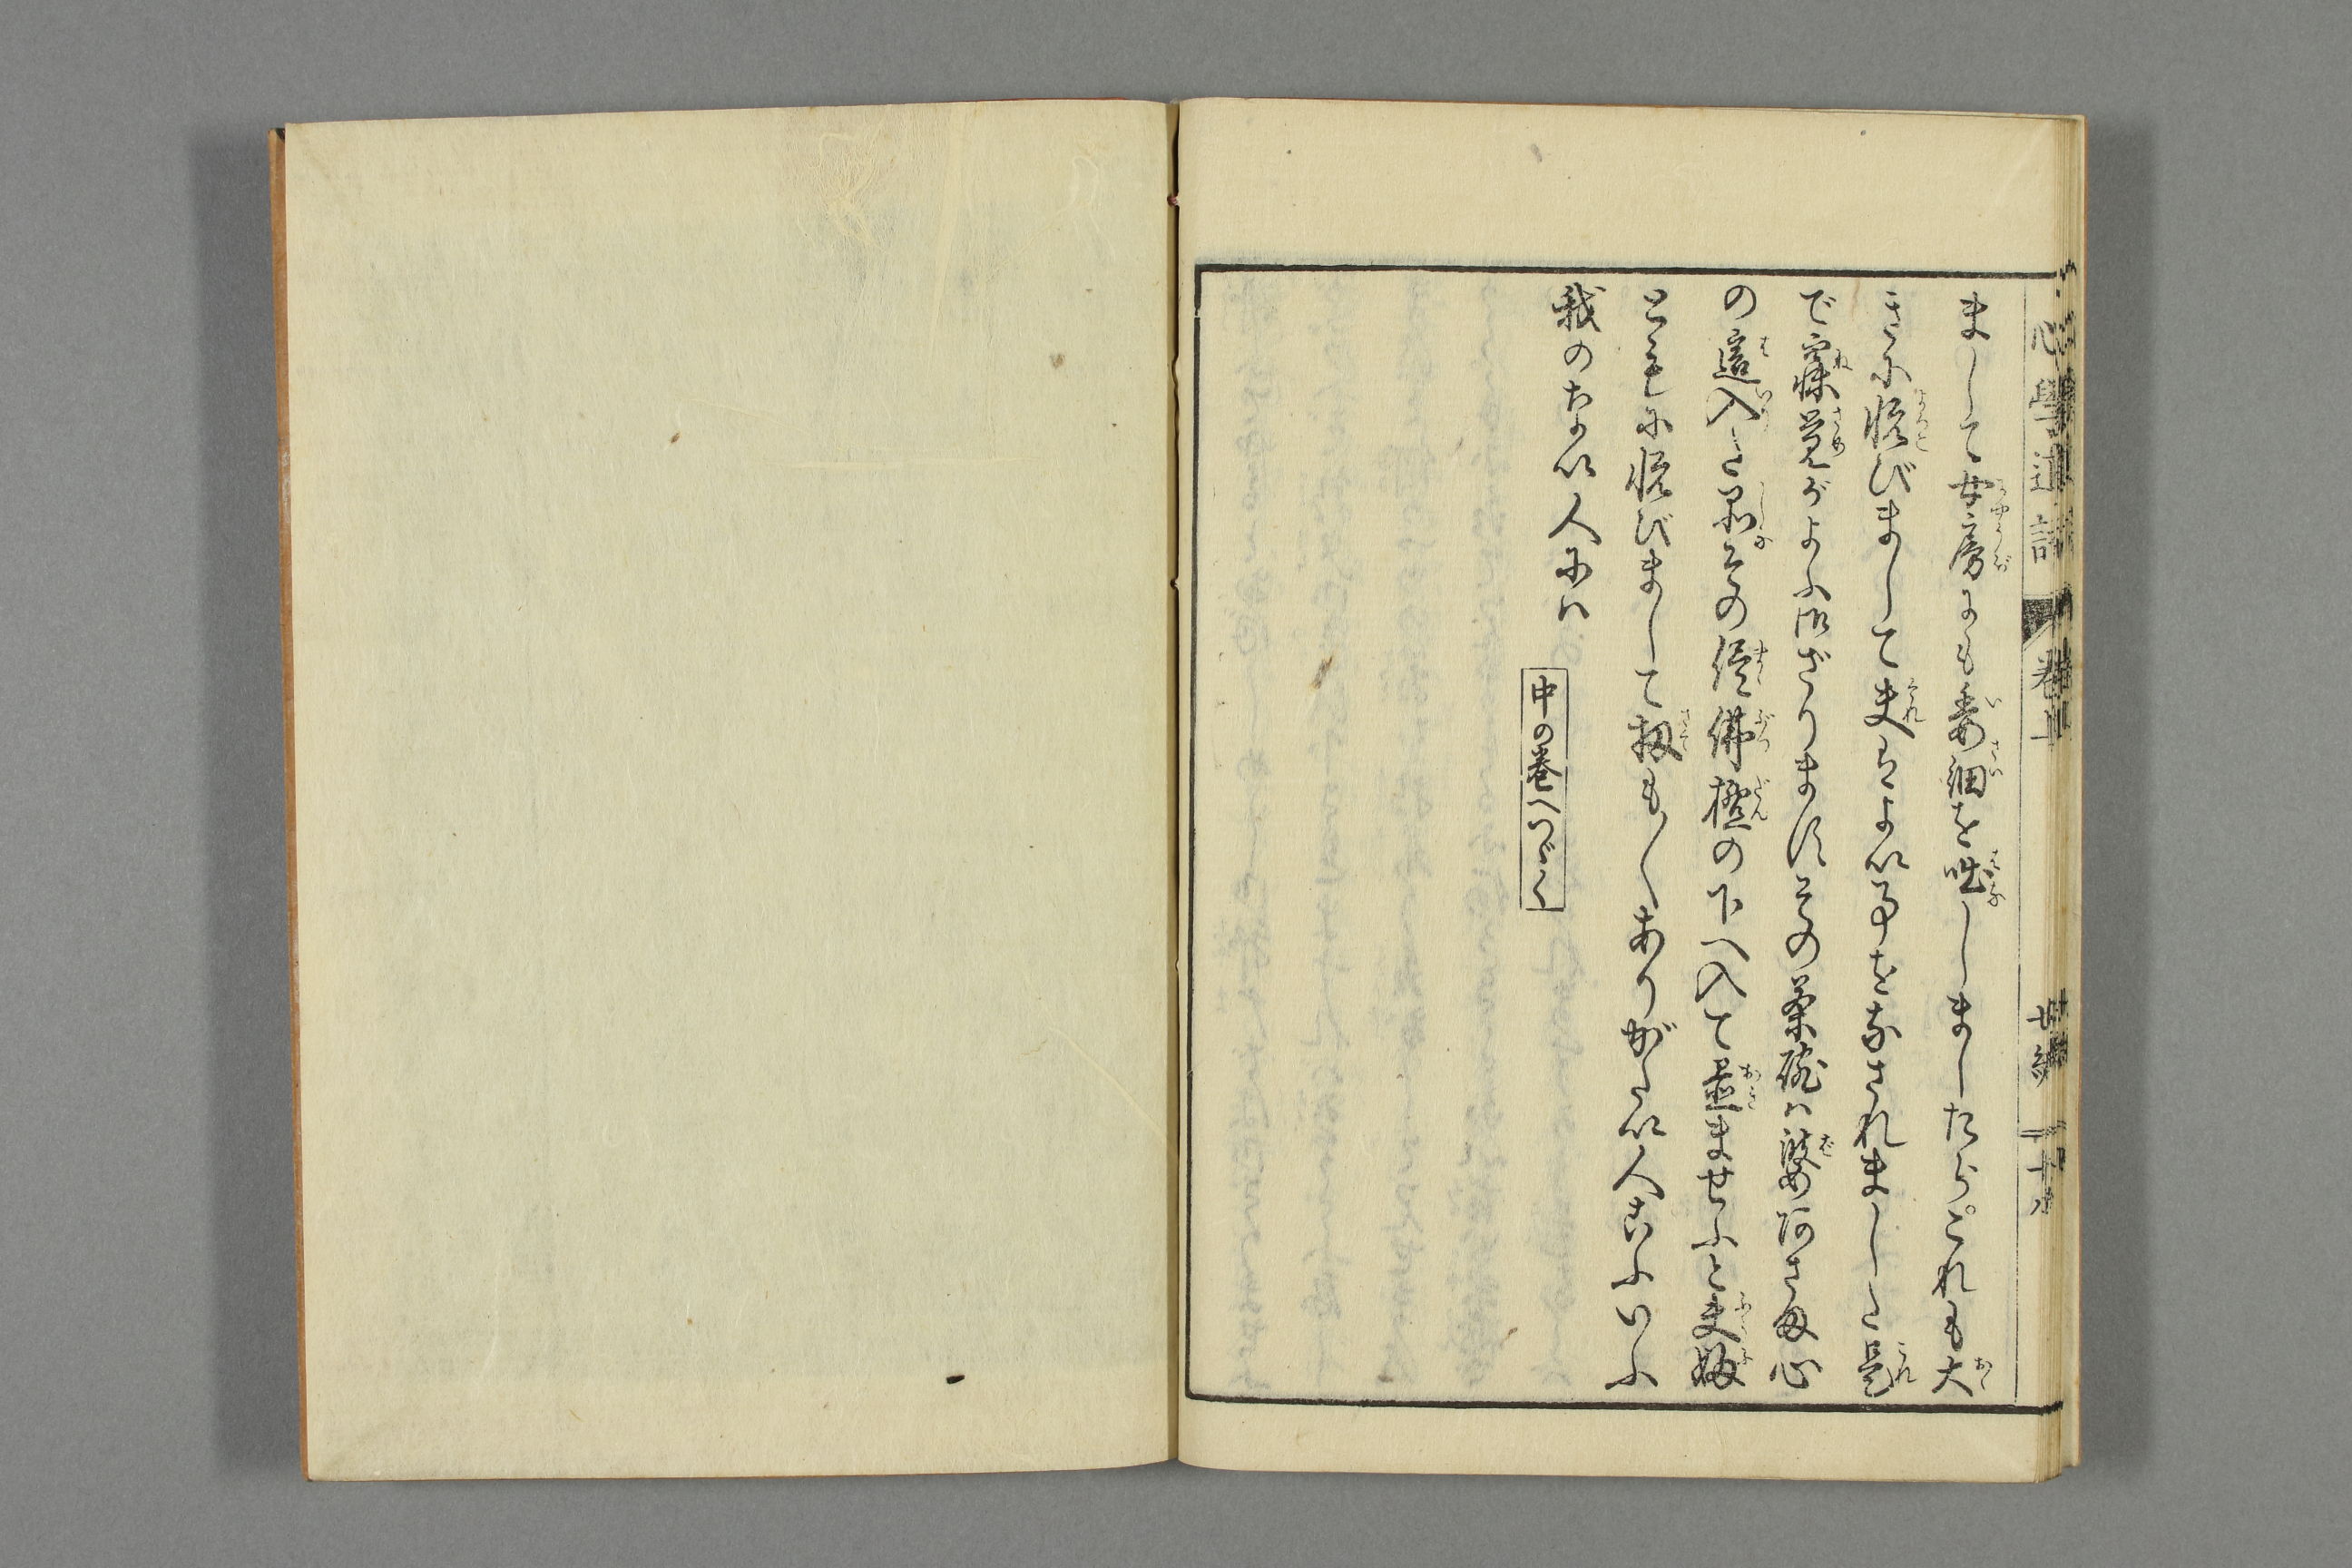 まして女房にも委細を咄しましたらこれも大
きに悦びまして夫はよい事をなされました是
で寐覚がよふ御ざります其の茶碗は婆阿さま心
の這入た品その侭佛檀の下へ入て置ませふと夫婦
ともに悦びまして扨も〱ありがたい人こふいふ
我のない人には
中の巻へつゞく
心學道話
巻上